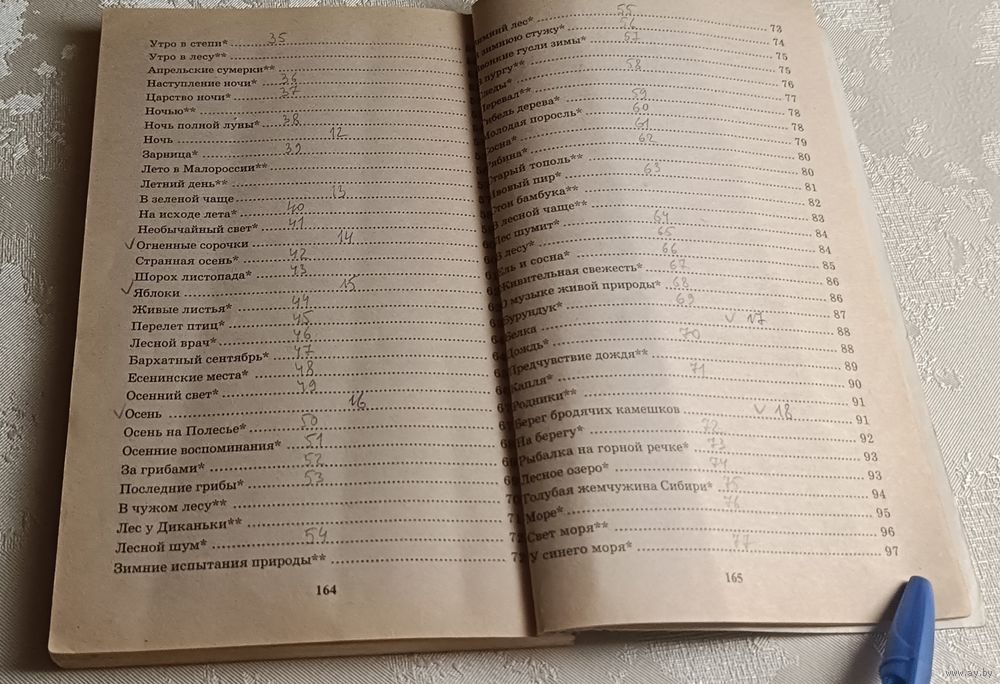 Утро в степи* 35
Утро в лесу**
Апрельские сумерки**
Наступление ночи* 36
Царство ночи* 37
Ночью**
Ночь полной луны* 38
Ночь 12
Зарница* 39
Лето в Малороссии**
Летний день**
В зеленой чаще 13
На исходе лета* 40
Необычайный свет* 41
Огненные сорочки 14
Странная осень* 42
Шорох листопада* 43
Яблоки 15
Живые листья* 44
Перелет птиц* 45
Лесной врач* 46
Бархатный сентябрь* 47
Есенинские места* 48
Осенний свет* 49
Осень 16
Осень на Полесье* 50
Осенние воспоминания* 51
За грибами* 52
Последние грибы* 53
В чужом лесу**
Лес у Диканьки**
Лесной шум* 54
Зимние испытания природы**
164
лес* 55 73
зимнюю стужу* 56 74
гусли зимы* 57 75
пургу** 75
58 76
77
дерева* 59 78
Молодая поросль* 60 78
Сосна* 61 79
62 80
Старый тополь** 80
пир* 63 81
бамбука** 82
В лесной чаще** 83
Лес шумит* 64 84
В лесу* 65 84
Ель и сосна* 66 85
Живительная свежесть* 67 86
О музыке живой природы* 68 86
Бурундук* 69 87
Белка 17 88
Дождь* 70 88
Предчувствие дождя** 89
Капля* 71 90
Родники** 91
Берег бродячих камешков 18 91
На берегу* 72 92
Рыбалка на горной речке* 73 93
Лесное озеро* 74 93
Голубая жемчужина Сибири* 75 94
Море* 76 95
Свет моря** 96
У синего моря* 77 97
165
www.ay.by